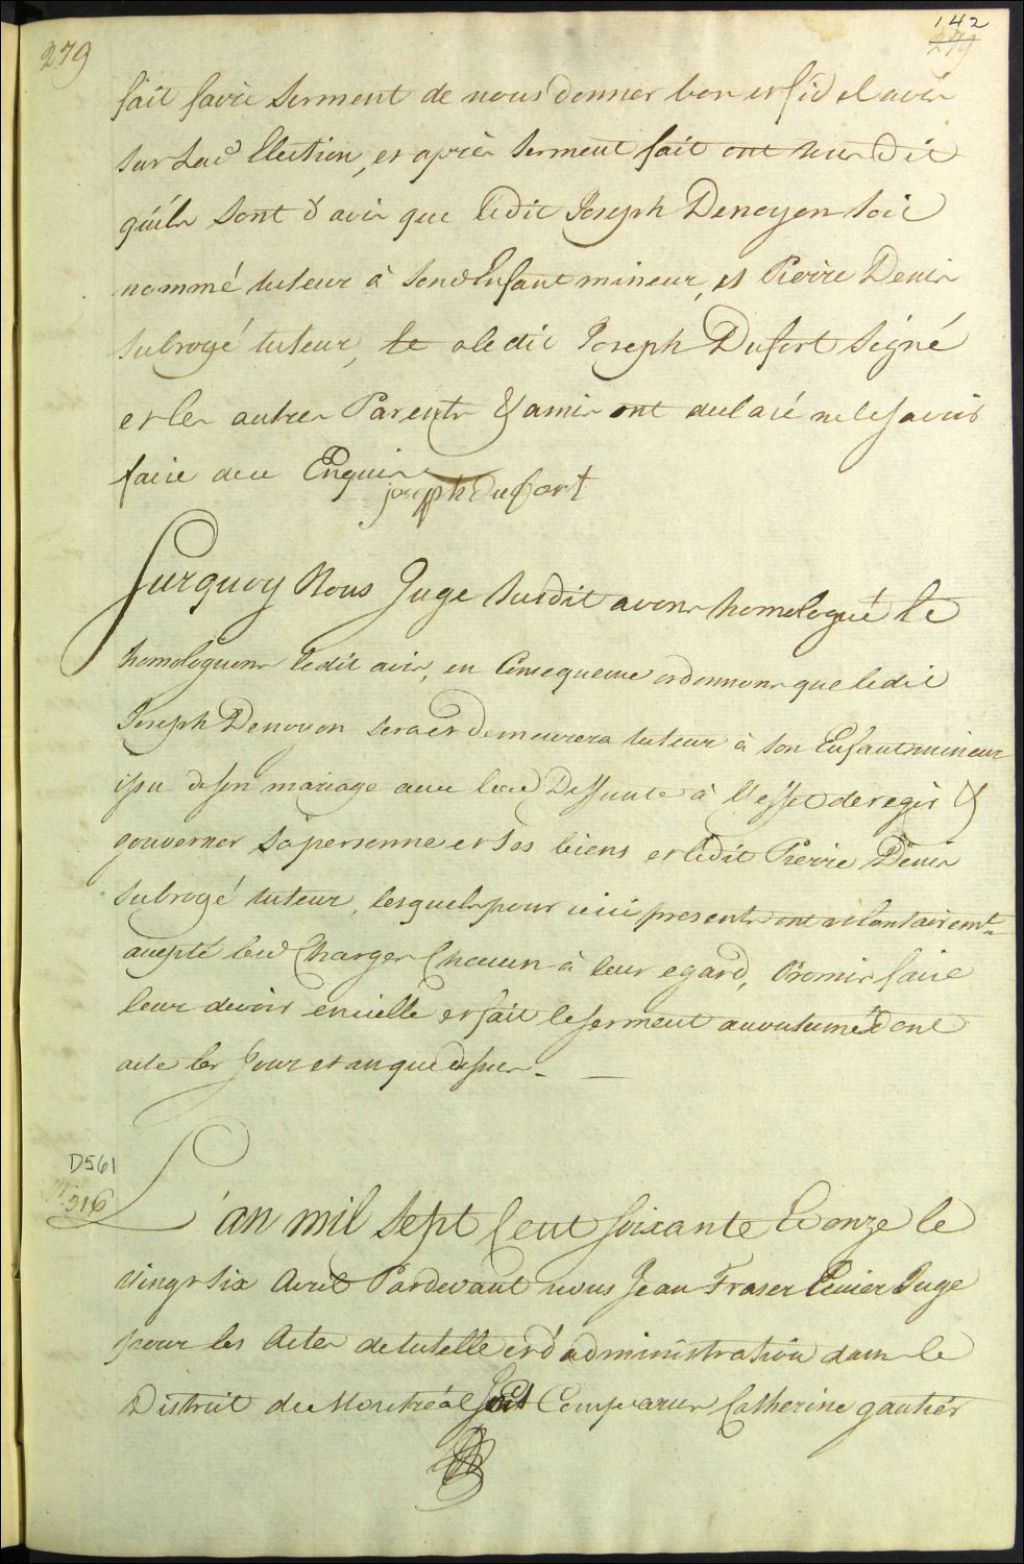 142
279
279
fait faire serment de nous donner bon et fidel avis
sur Lad Election, et après serment fait ont nous dit
qu'ils sont d'avis que ledit Joseph Denoyon soit
nommé tuteur à sond Enfant mineur, et Pierre Denis
subrogé tuteur, le a ledit Joseph Dufort signé
et les autres Parents & amis ont declaré ne le savoir
faire de ce Enquis
joseph dufort
Surquoy Nous Juge susdit avons homologué le
homologuons ledit avis, en Consequence ordonnons que ledit
Joseph Denoyon sera et demeurera tuteur à son Enfant mineur
issu de son mariage avec lad Deffunte à l'effet de regir &
gouverner sa personne et ses biens et ledit Pierre Denis
subrogé tuteur, lesquels pour ce ici presents ont volontairemt
accepté lesd Charges Chacun à leur egard, Promis faire
leur devoir en icelle et fait le serment accoutumé dont
acte les Jour et an que dessus
D561
316
L'an mil sept Cent soixante et onze le
vingt six Avril Pardevant nous Jean Fraser Ecuier Juge
pour les Actes de tutelle et d'administration dans le
District de Montréal sont Comparus Catherine gautier